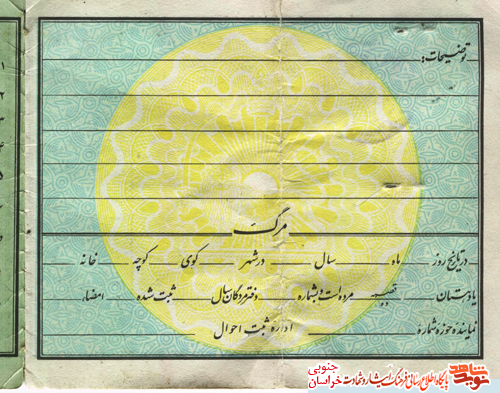 توضیحات:
مرگ
در تاریخ روز ماه سال در شهر کوی کوچه خانه
یا دبستان قصبه مرده است و بشماره دفتر مردگان سال ثبت شده امضاء
نماینده حوزه شماره اداره ثبت احوال
۱
۲
۳
۴
۵
نوید شاهد
پایگاه اطلاع رسانی فرهنگ ایثار و شهادت
خراسان جنوبی